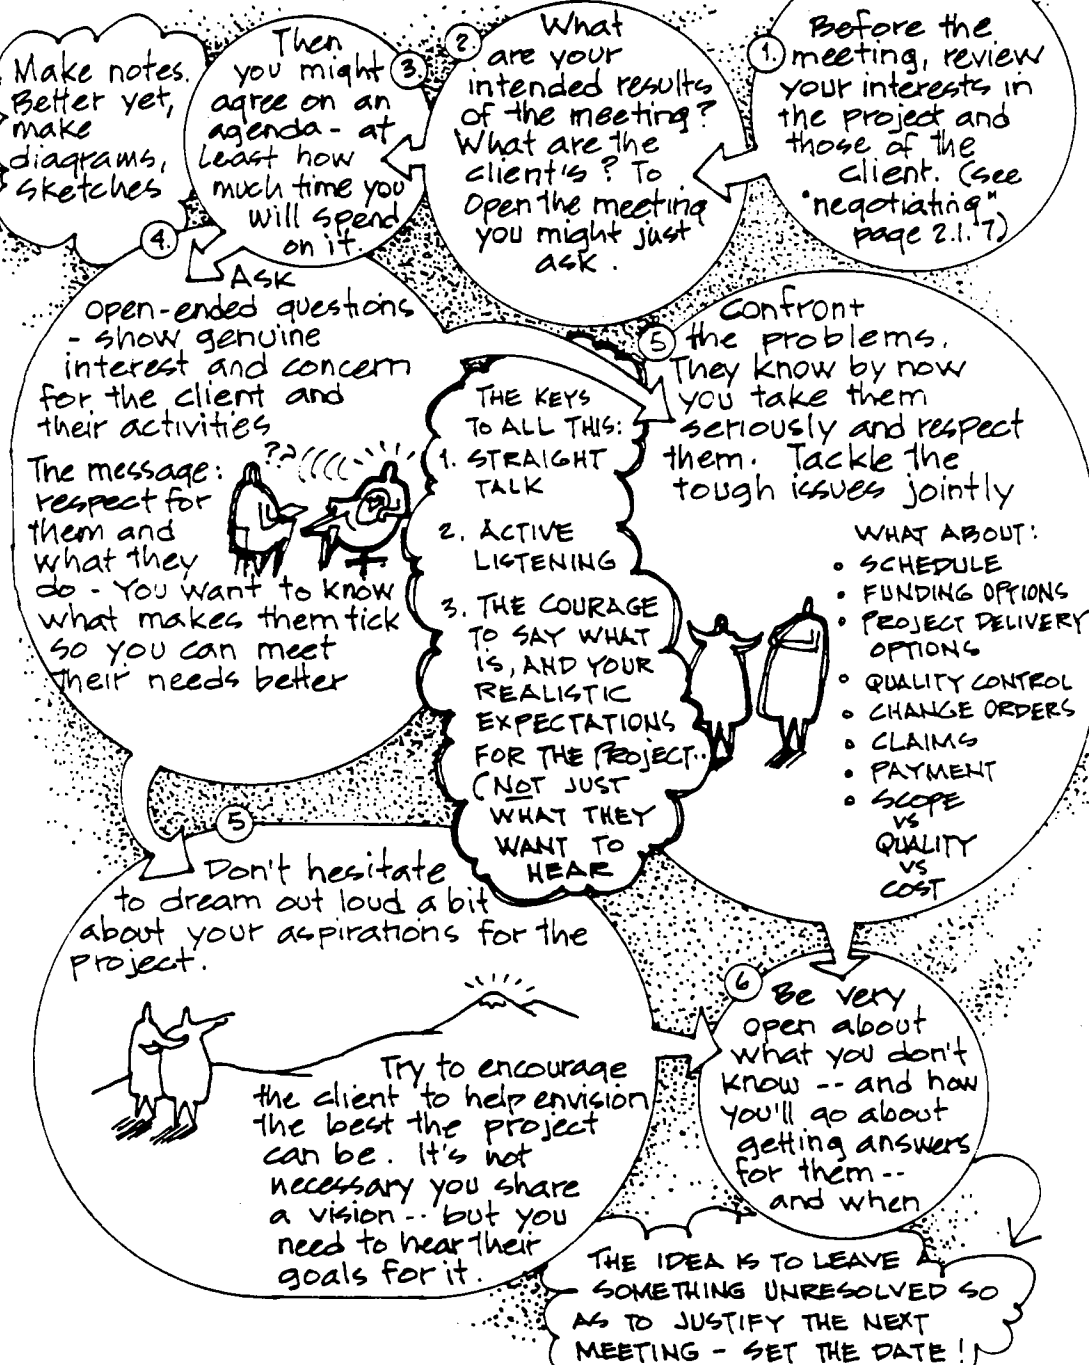 1.
Before the
meeting, review
your interests in
the project and
those of the
client. (see
"negotiating"
page 2.1.7)
2.
What
are your
intended results
of the meeting?
What are the
client's? To
Open the meeting
you might just
ask.
3.
Then
you might
agree on an
agenda - at
least how
much time you
will spend
on it.
Make notes.
Better yet,
make
diagrams,
sketches
4.
Ask
open-ended questions
- show genuine
interest and concern
for the client and
their activities
The message:
respect for
them and
what they
do - You want to know
what makes them tick
so you can meet
their needs better
??
THE KEYS
TO ALL THIS:
1. STRAIGHT
TALK
2. ACTIVE
LISTENING
3. THE COURAGE
TO SAY WHAT
IS, AND YOUR
REALISTIC
EXPECTATIONS
FOR THE PROJECT..
(NOT JUST
WHAT THEY
WANT TO
HEAR
5
Confront
the problems.
They know by now
you take them
seriously and respect
them. Tackle the
tough issues jointly
WHAT ABOUT:
• SCHEDULE
• FUNDING OPTIONS
• PROJECT DELIVERY
OPTIONS
• QUALITY CONTROL
• CHANGE ORDERS
• CLAIMS
• PAYMENT
• SCOPE
VS
QUALITY
VS
COST
5
Don't hesitate
to dream out loud a bit
about your aspirations for the
project.
Try to encourage
the client to help envision
the best the project
can be. It's not
necessary you share
a vision -- but you
need to hear their
goals for it.
6
Be very
open about
what you don't
know -- and how
you'll go about
getting answers
for them --
and when
THE IDEA IS TO LEAVE A
SOMETHING UNRESOLVED SO
AS TO JUSTIFY THE NEXT
MEETING - SET THE DATE!